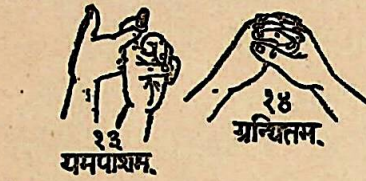 १३
यमपाशम्.
१४
ग्रन्थितम्.